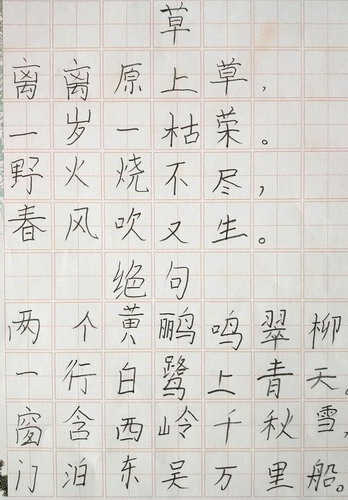 草
离离原上草，
一岁一枯荣。
野火烧不尽，
春风吹又生。
绝句
两个黄鹂鸣翠柳
一行白鹭上青天。
窗含西岭千秋雪，
门泊东吴万里船。